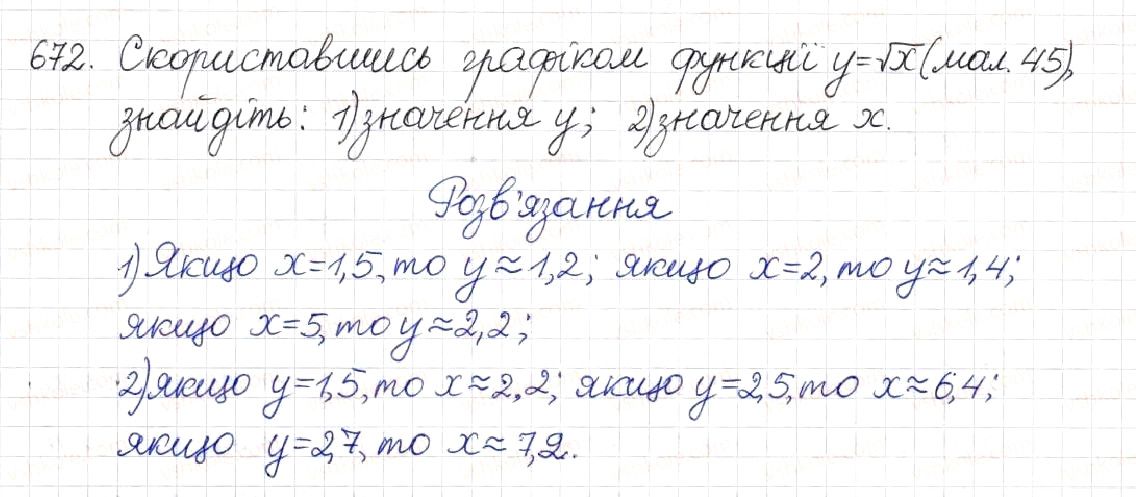 672. Скориставшись графіком функції y=√x (мал. 45),
знайдіть: 1) значення y; 2) значення x.
Розв'язання
1) Якщо x=1,5, то y≈1,2; якщо x=2, то y≈1,4;
якщо x=5, то y≈2,2;
2) якщо y=1,5, то x≈2,2; якщо y=2,5, то x≈6,4;
якщо y=2,7, то x≈7,2.